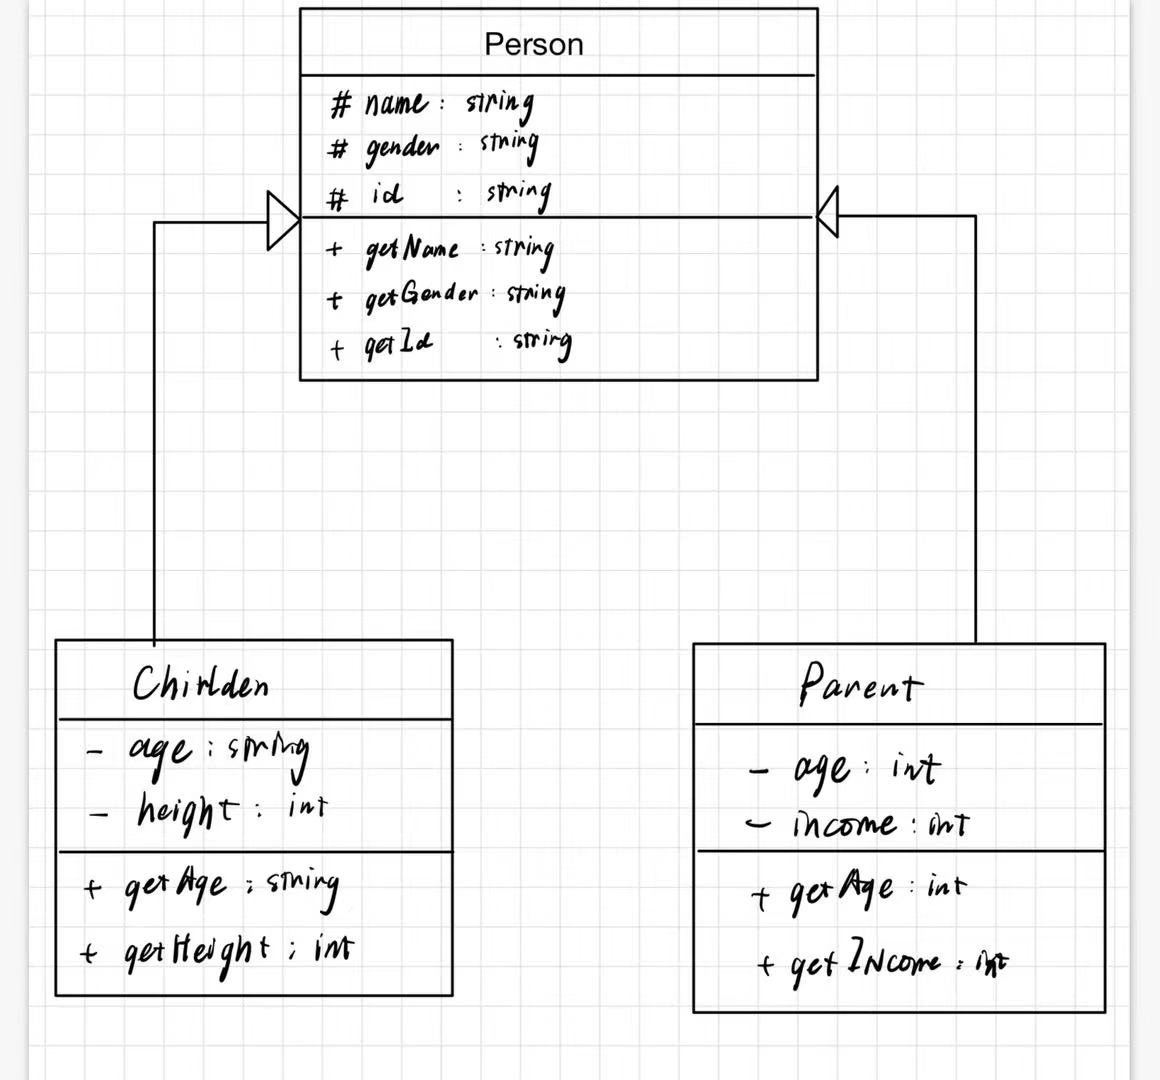 Person
# name : string
# gender : string
# id : string
+ getName : string
+ getGender : string
+ getId : string
Chirlden
- age : string
- height : int
+ getAge : string
+ getHeight : int
Parent
- age : int
- income : int
+ getAge : int
+ getINcome : int